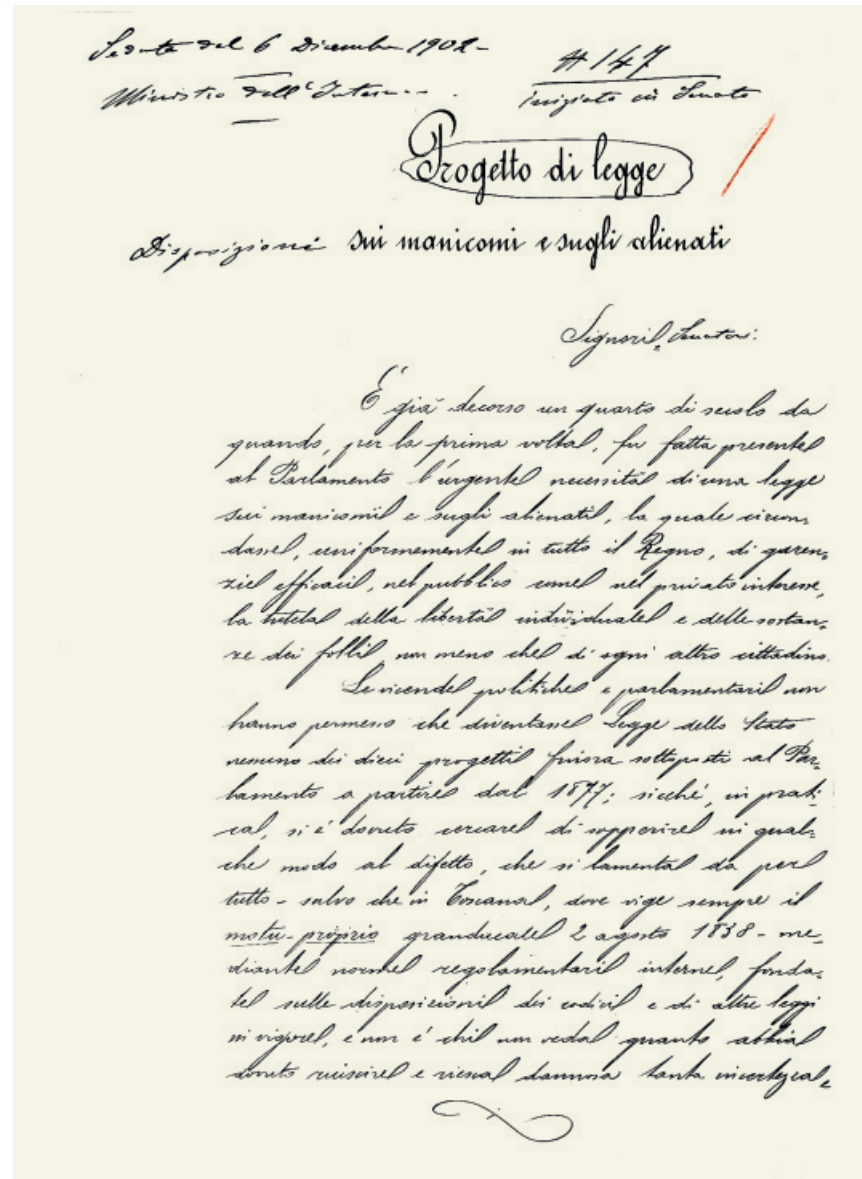 Seduta del 6 Dicembre 1902 -
Ministro dell'Interno
# 147
iniziato in Senato
Progetto di legge
Disposizioni sui manicomi e sugli alienati
Signori Senatori:
È già decorso un quarto di secolo da
quando, per la prima volta, fu fatta presente
al Parlamento l'urgente necessità di una legge
sui manicomi e sugli alienati, la quale circon-
dasse, uniformemente in tutto il Regno, di garen-
zie efficaci, nel pubblico come nel privato interesse,
la tutela della libertà individuale e delle sostan-
ze dei folli, non meno che di ogni altro cittadino.
Le vicende politiche e parlamentari non
hanno permesso che diventasse Legge dello Stato
nessuno dei dieci progetti finora sottoposti al Par-
lamento a partire dal 1877; sicché, in prati-
ca, si è dovuto cercare di sopperire in qual-
che modo al difetto, che si lamenta da per
tutto - salvo che in Toscana, dove vige sempre il
motu-proprio granducale 2 agosto 1838 - me-
diante norme regolamentari interne, fonda-
te sulle disposizioni dei codici e di altre leggi
in vigore, e non è chi non veda quanto abbia
dovuto riuscire e riesca dannosa tanta incertezza.